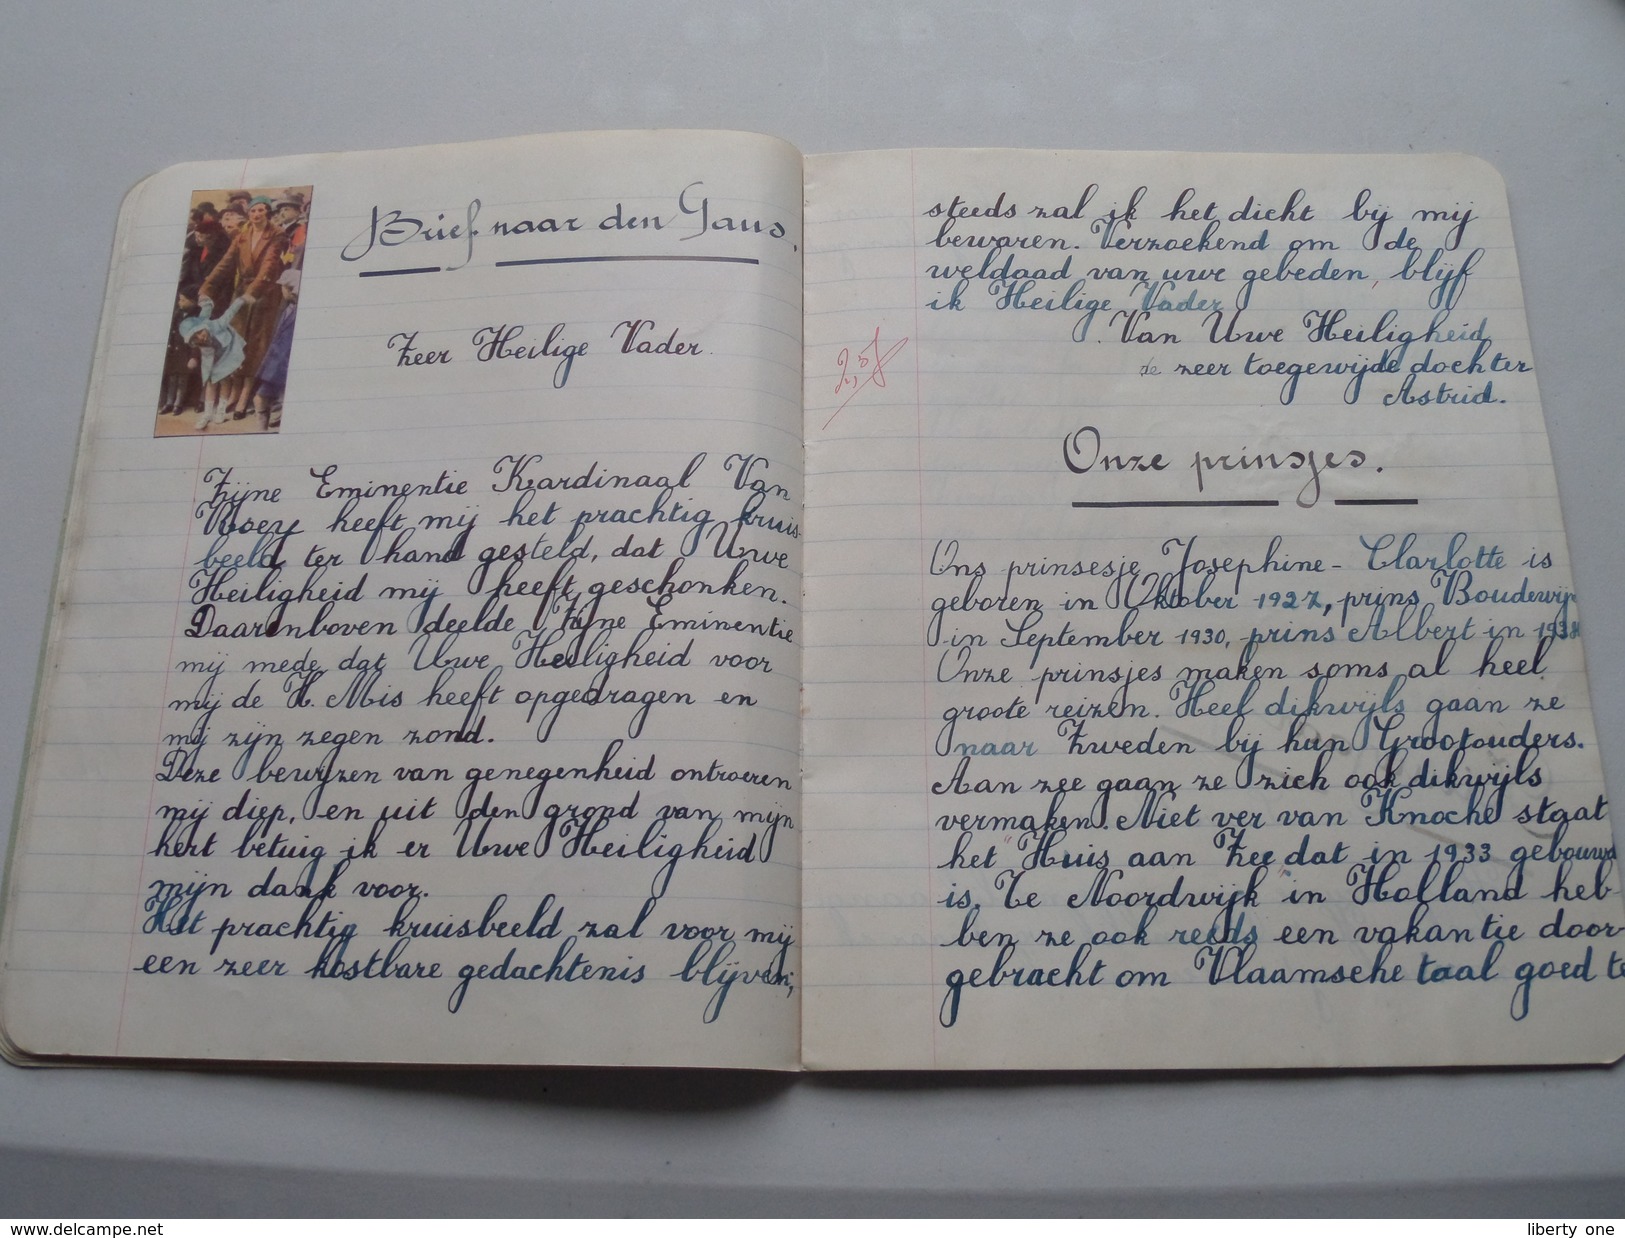 Brief naar den Paus.
Zeer Heilige Vader.
Zijne Eminentie Kardinaal Van
Roey heeft mij het prachtig kruis-
beeld ter hand gesteld, dat Uwe
Heiligheid mij heeft geschonken.
Daarenboven deelde Zijne Eminentie
mij mede dat Uwe Heiligheid voor
mij de H. Mis heeft opgedragen en
mij zijn zegen zond.
Deze bewijzen van genegenheid ontroeren
mij diep, en uit den grond van mijn
hert betuig ik er Uwe Heiligheid
mijn dank voor.
Het prachtig kruisbeeld zal voor mij
een zeer kostbare gedachtenis blijven;
steeds zal ik het dicht bij mij
bewaren. Verzoekend om de
weldaad van uwe gebeden, blijf
ik Heilige Vader
Van Uwe Heiligheid
de zeer toegewijde dochter
Astrid.
2,5
Onze prinsjes.
Ons prinsesje Josephine-Clarlotte is
geboren in Oktober 1927, prins Boudewijn
in September 1930, prins Albert in 1934
Onze prinsjes maken soms al heel
groote reizen. Heel dikwijls gaan ze
naar Zweden bij hun Grootouders.
Aan zee gaan ze zich ook dikwijls
vermaken. Niet ver van Knocke staat
het Huis aan Zee dat in 1933 gebouwd
is. Te Noordwijk in Holland heb-
ben ze ook reeds een vakantie door-
gebracht om Vlaamsche taal goed te
www.delcampe.net
liberty one